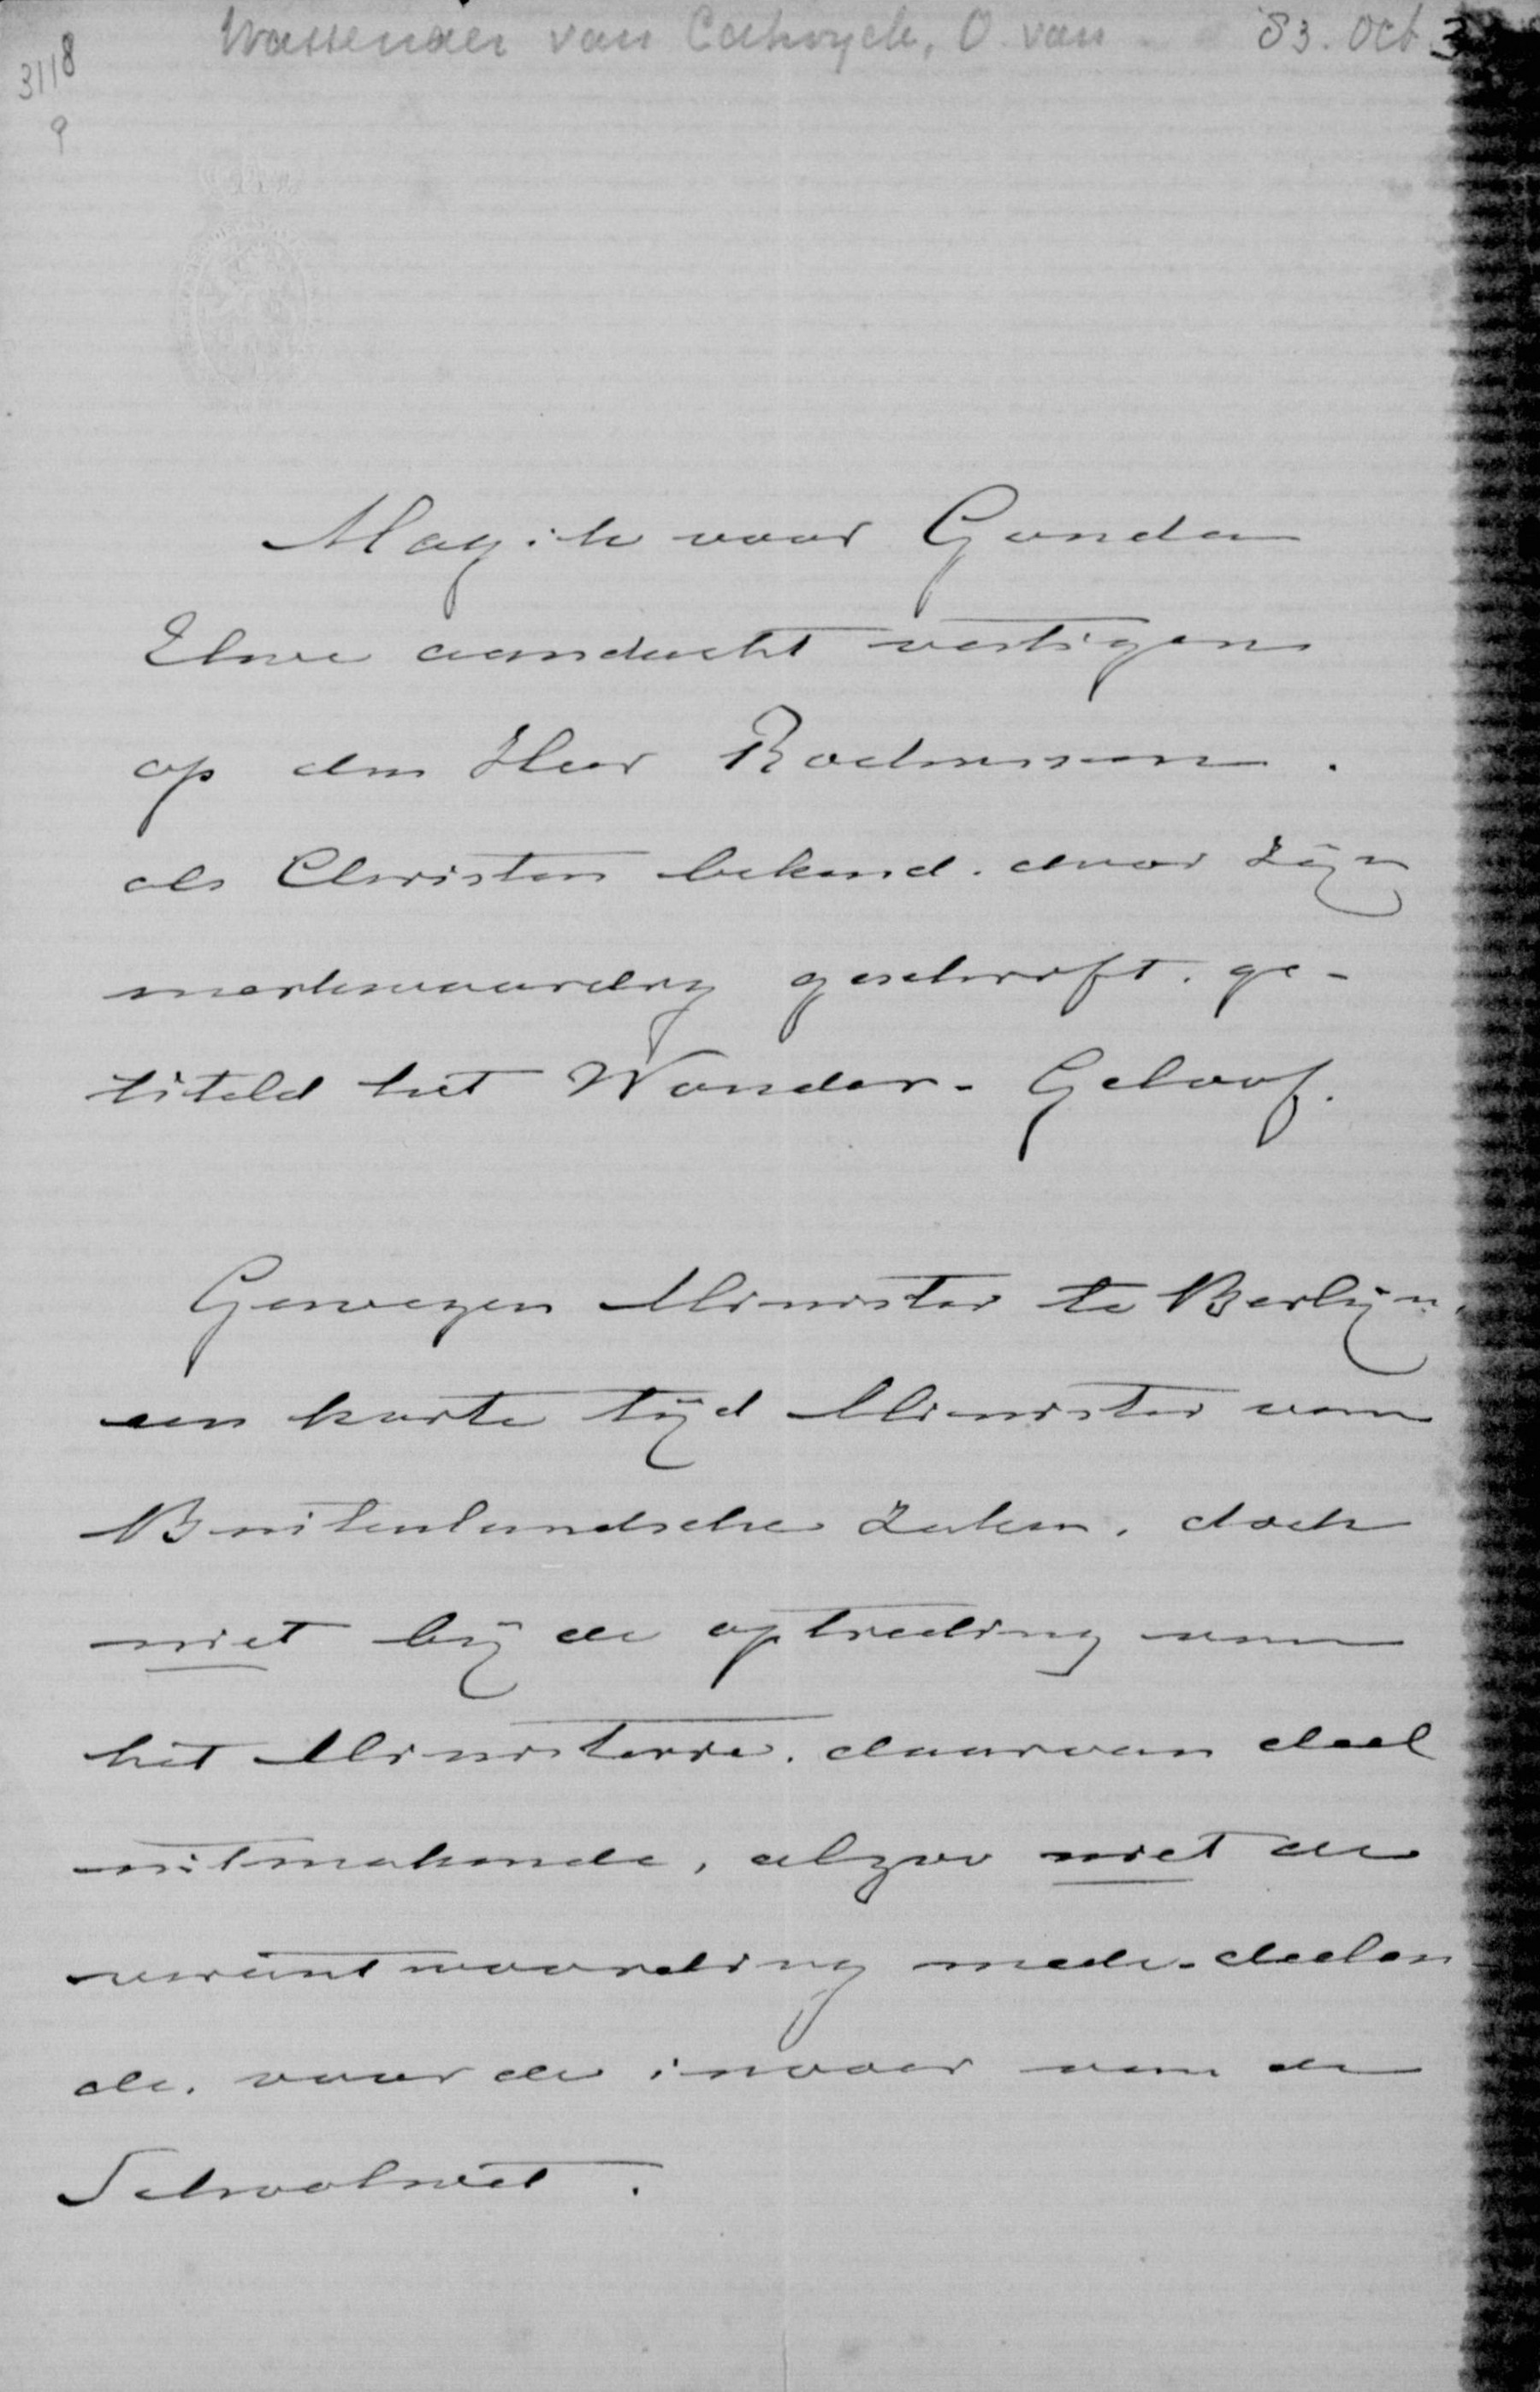 Wassenaer van Catwyck, O. van '83. Oct. 3
3118
9
Mag ik voor Gouda
Uwe aandacht vestigen
op den Heer Rochussen.
als Christen bekend. door zijn
merkwaardig geschrift. ge-
titeld het Wonder-Geloof.
Gewezen Minister te Berlijn,
een korte tijd Minister van
Buitenlandsche Zaken, doch
niet bij de optreding van
het Ministerie. daarvan deel
uitmakende, alzoo niet de
verantwoording mede-deelen
de. voor de invoer van de
Schoolwet.